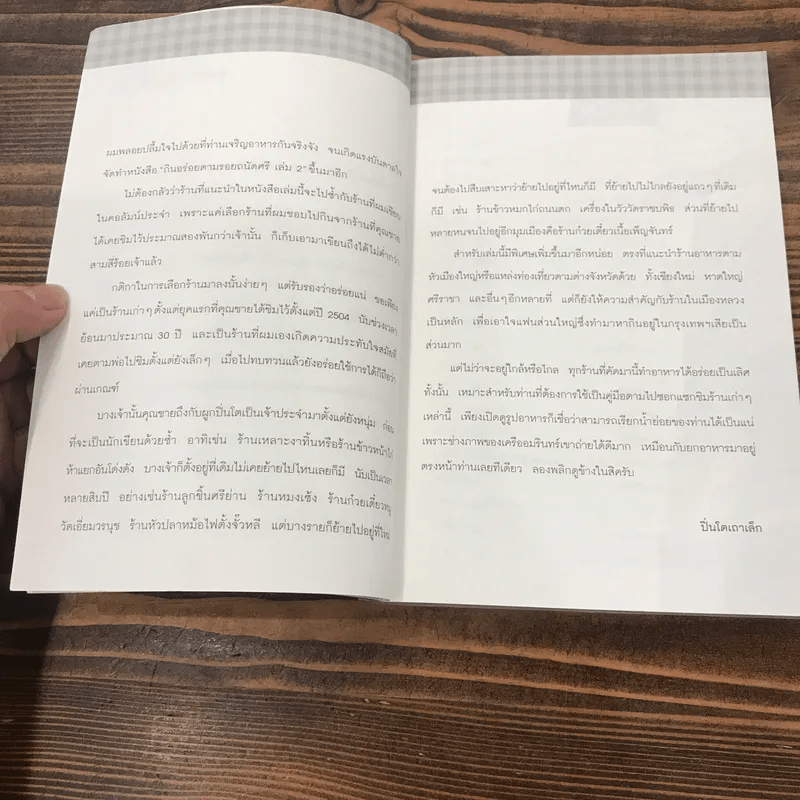 ผมพลอยปลื้มใจไปด้วยที่ท่านเจริญอาหารกันจริงจัง จนเกิดแรงบันดาลใจ
จัดทำหนังสือ "กินอร่อยตามรอยถนัดศรี เล่ม 2" ขึ้นมาอีก
ไม่ต้องกลัวว่าร้านที่แนะนำในหนังสือเล่มนี้จะไปซ้ำกับร้านที่ผมเขียน
ในคอลัมน์ประจำ เพราะแค่เลือกร้านที่ผมชอบไปกินจากร้านที่คุณชาย
ได้เคยชิมไว้ประมาณสองพันกว่าเจ้านั้น ก็เก็บเอามาเขียนถึงได้ไม่ต่ำกว่า
สามสี่ร้อยเจ้าแล้ว
กติกาในการเลือกร้านมาลงนั้นง่ายๆ แต่รับรองว่าอร่อยแน่ ขอเพียง
แค่เป็นร้านเก่าๆ ตั้งแต่ยุคแรกที่คุณชายได้ชิมไว้ตั้งแต่ปี 2504 นับช่วงเวลา
ย้อนมาประมาณ 30 ปี และเป็นร้านที่ผมเองเกิดความประทับใจสมัยที่
เคยตามพ่อไปชิมตั้งแต่ยังเล็กๆ เมื่อไปทบทวนแล้วยังอร่อยใช้การได้ก็ถือว่า
ผ่านเกณฑ์
บางเจ้านั้นคุณชายถึงกับผูกปิ่นโตเป็นเจ้าประจำมาตั้งแต่ยังหนุ่ม ก่อน
ที่จะเป็นนักเขียนด้วยซ้ำ อาทิเช่น ร้านเหลาะงาทิ้นหรือร้านข้าวหน้าไก่
ห้าแยกอันโด่งดัง บางเจ้าก็ตั้งอยู่ที่เดิมไม่เคยย้ายไปไหนเลยก็มี นับเป็นเวลา
หลายสิบปี อย่างเช่นร้านลูกชิ้นศรีย่าน ร้านหมงเซ้ง ร้านก๋วยเตี๋ยวหมู
วัดเอี่ยมวรนุช ร้านหัวปลาหม้อไฟตั้งจั๊วหลี แต่บางรายก็ย้ายไปอยู่ที่ใหม่
จนต้องไปสืบเสาะหาว่าย้ายไปอยู่ที่ไหนก็มี ที่ย้ายไปไม่ไกลยังอยู่แถวๆ ที่เดิม
ก็มี เช่น ร้านข้าวหมกไก่ถนนตก เครื่องในวัววัดราชบพิธ ส่วนที่ย้ายไป
หลายหนจนไปอยู่อีกมุมเมืองคือร้านก๋วยเตี๋ยวเนื้อเพ็ญจันทร์
สำหรับเล่มนี้มีพิเศษเพิ่มขึ้นมาอีกหน่อย ตรงที่แนะนำร้านอาหารตาม
หัวเมืองใหญ่หรือแหล่งท่องเที่ยวตามต่างจังหวัดด้วย ทั้งเชียงใหม่ หาดใหญ่
ศรีราชา และอื่นๆ อีกหลายที่ แต่ก็ยังให้ความสำคัญกับร้านในเมืองหลวง
เป็นหลัก เพื่อเอาใจแฟนส่วนใหญ่ซึ่งทำมาหากินอยู่ในกรุงเทพฯเสียเป็น
ส่วนมาก
แต่ไม่ว่าจะอยู่ใกล้หรือไกล ทุกร้านที่คัดมานี้ทำอาหารได้อร่อยเป็นเลิศ
ทั้งนั้น เหมาะสำหรับท่านที่ต้องการใช้เป็นคู่มือตามไปซอกแซกชิมร้านเก่าๆ
เหล่านี้ เพียงเปิดดูรูปอาหารก็เชื่อว่าสามารถเรียกน้ำย่อยของท่านได้เป็นแน่
เพราะช่างภาพของเครืออมรินทร์เขาถ่ายได้ดีมาก เหมือนกับยกอาหารมาอยู่
ตรงหน้าท่านเลยทีเดียว ลองพลิกดูข้างในสิครับ
ปิ่นโตเถาเล็ก